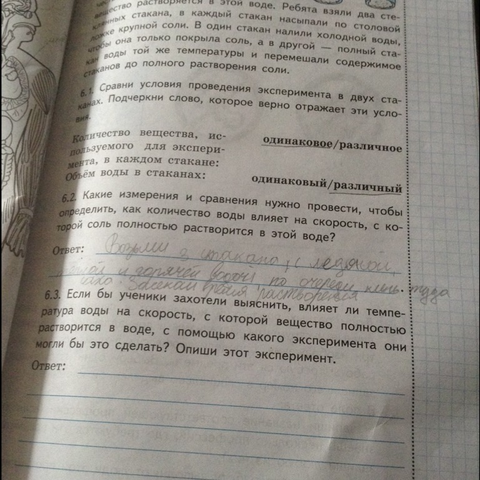 вещество растворяется в этой воде. Ребята взяли два сте-
клянных стакана, в каждый стакан насыпали по столовой
ложке крупной соли. В один стакан налили холодной воды,
чтобы она только покрыла соль, а в другой — полный ста-
кан воды той же температуры и перемешали содержимое
стаканов до полного растворения соли.
6.1. Сравни условия проведения эксперимента в двух ста-
канах. Подчеркни слово, которое верно отражает эти усло-
вия.
Количество вещества, ис-
пользуемого для экспери- одинаковое/различное
мента, в каждом стакане:
Объём воды в стаканах: одинаковый/различный
6.2. Какие измерения и сравнения нужно провести, чтобы
определить, как количество воды влияет на скорость, с ко-
торой соль полностью растворится в этой воде?
Ответ: Возьми 2 стакана с ледяной,
и горячей водой по очереди туда
время растворения
6.3. Если бы ученики захотели выяснить, влияет ли темпе-
ратура воды на скорость, с которой вещество полностью
растворится в воде, с помощью какого эксперимента они
могли бы это сделать? Опиши этот эксперимент.
Ответ: